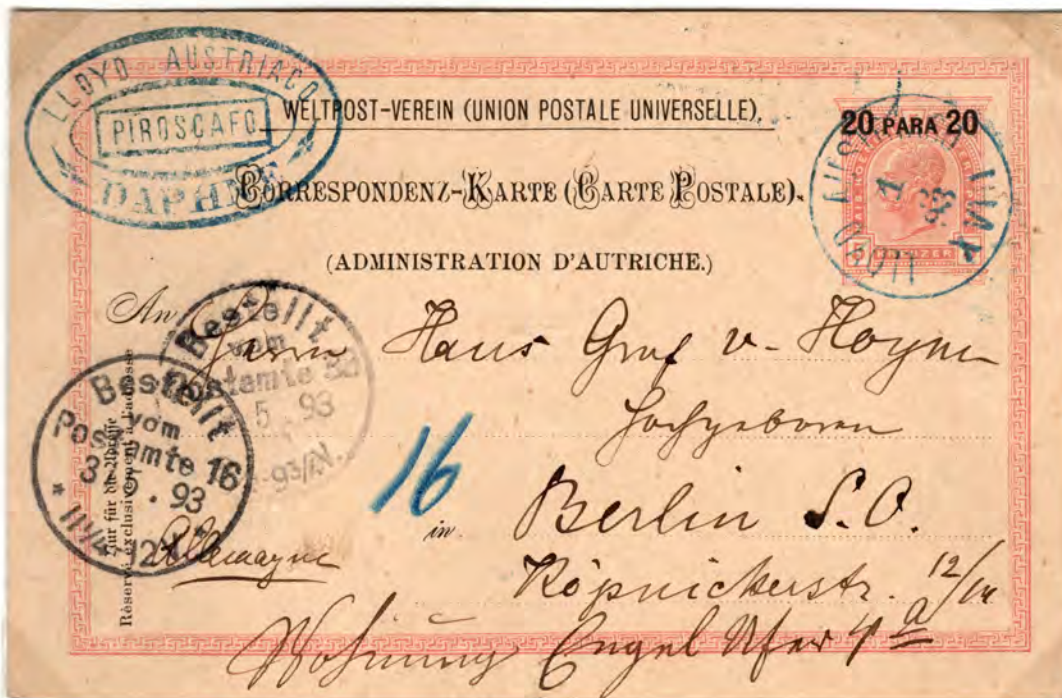 LLOYD AUSTRIACO
PIROSCAFO
DAPHNE
WELTPOST-VEREIN (UNION POSTALE UNIVERSELLE).
20 PARA 20
CORRESPONDENZ-KARTE (CARTE POSTALE).
93
KREUZER
(ADMINISTRATION D'AUTRICHE.)
An
Herrn Hans Graf v.
Hochgeboren
Bestellt
vom
Postamte
5 93
Bestellt
vom
Postamte 16
3 93
16
in
Berlin S.O.
Allemagne
Köpnickerstr.
Wohnung Engel Ufer 4a
Nur für die Adresse
Réservé exclusivement à l'adresse